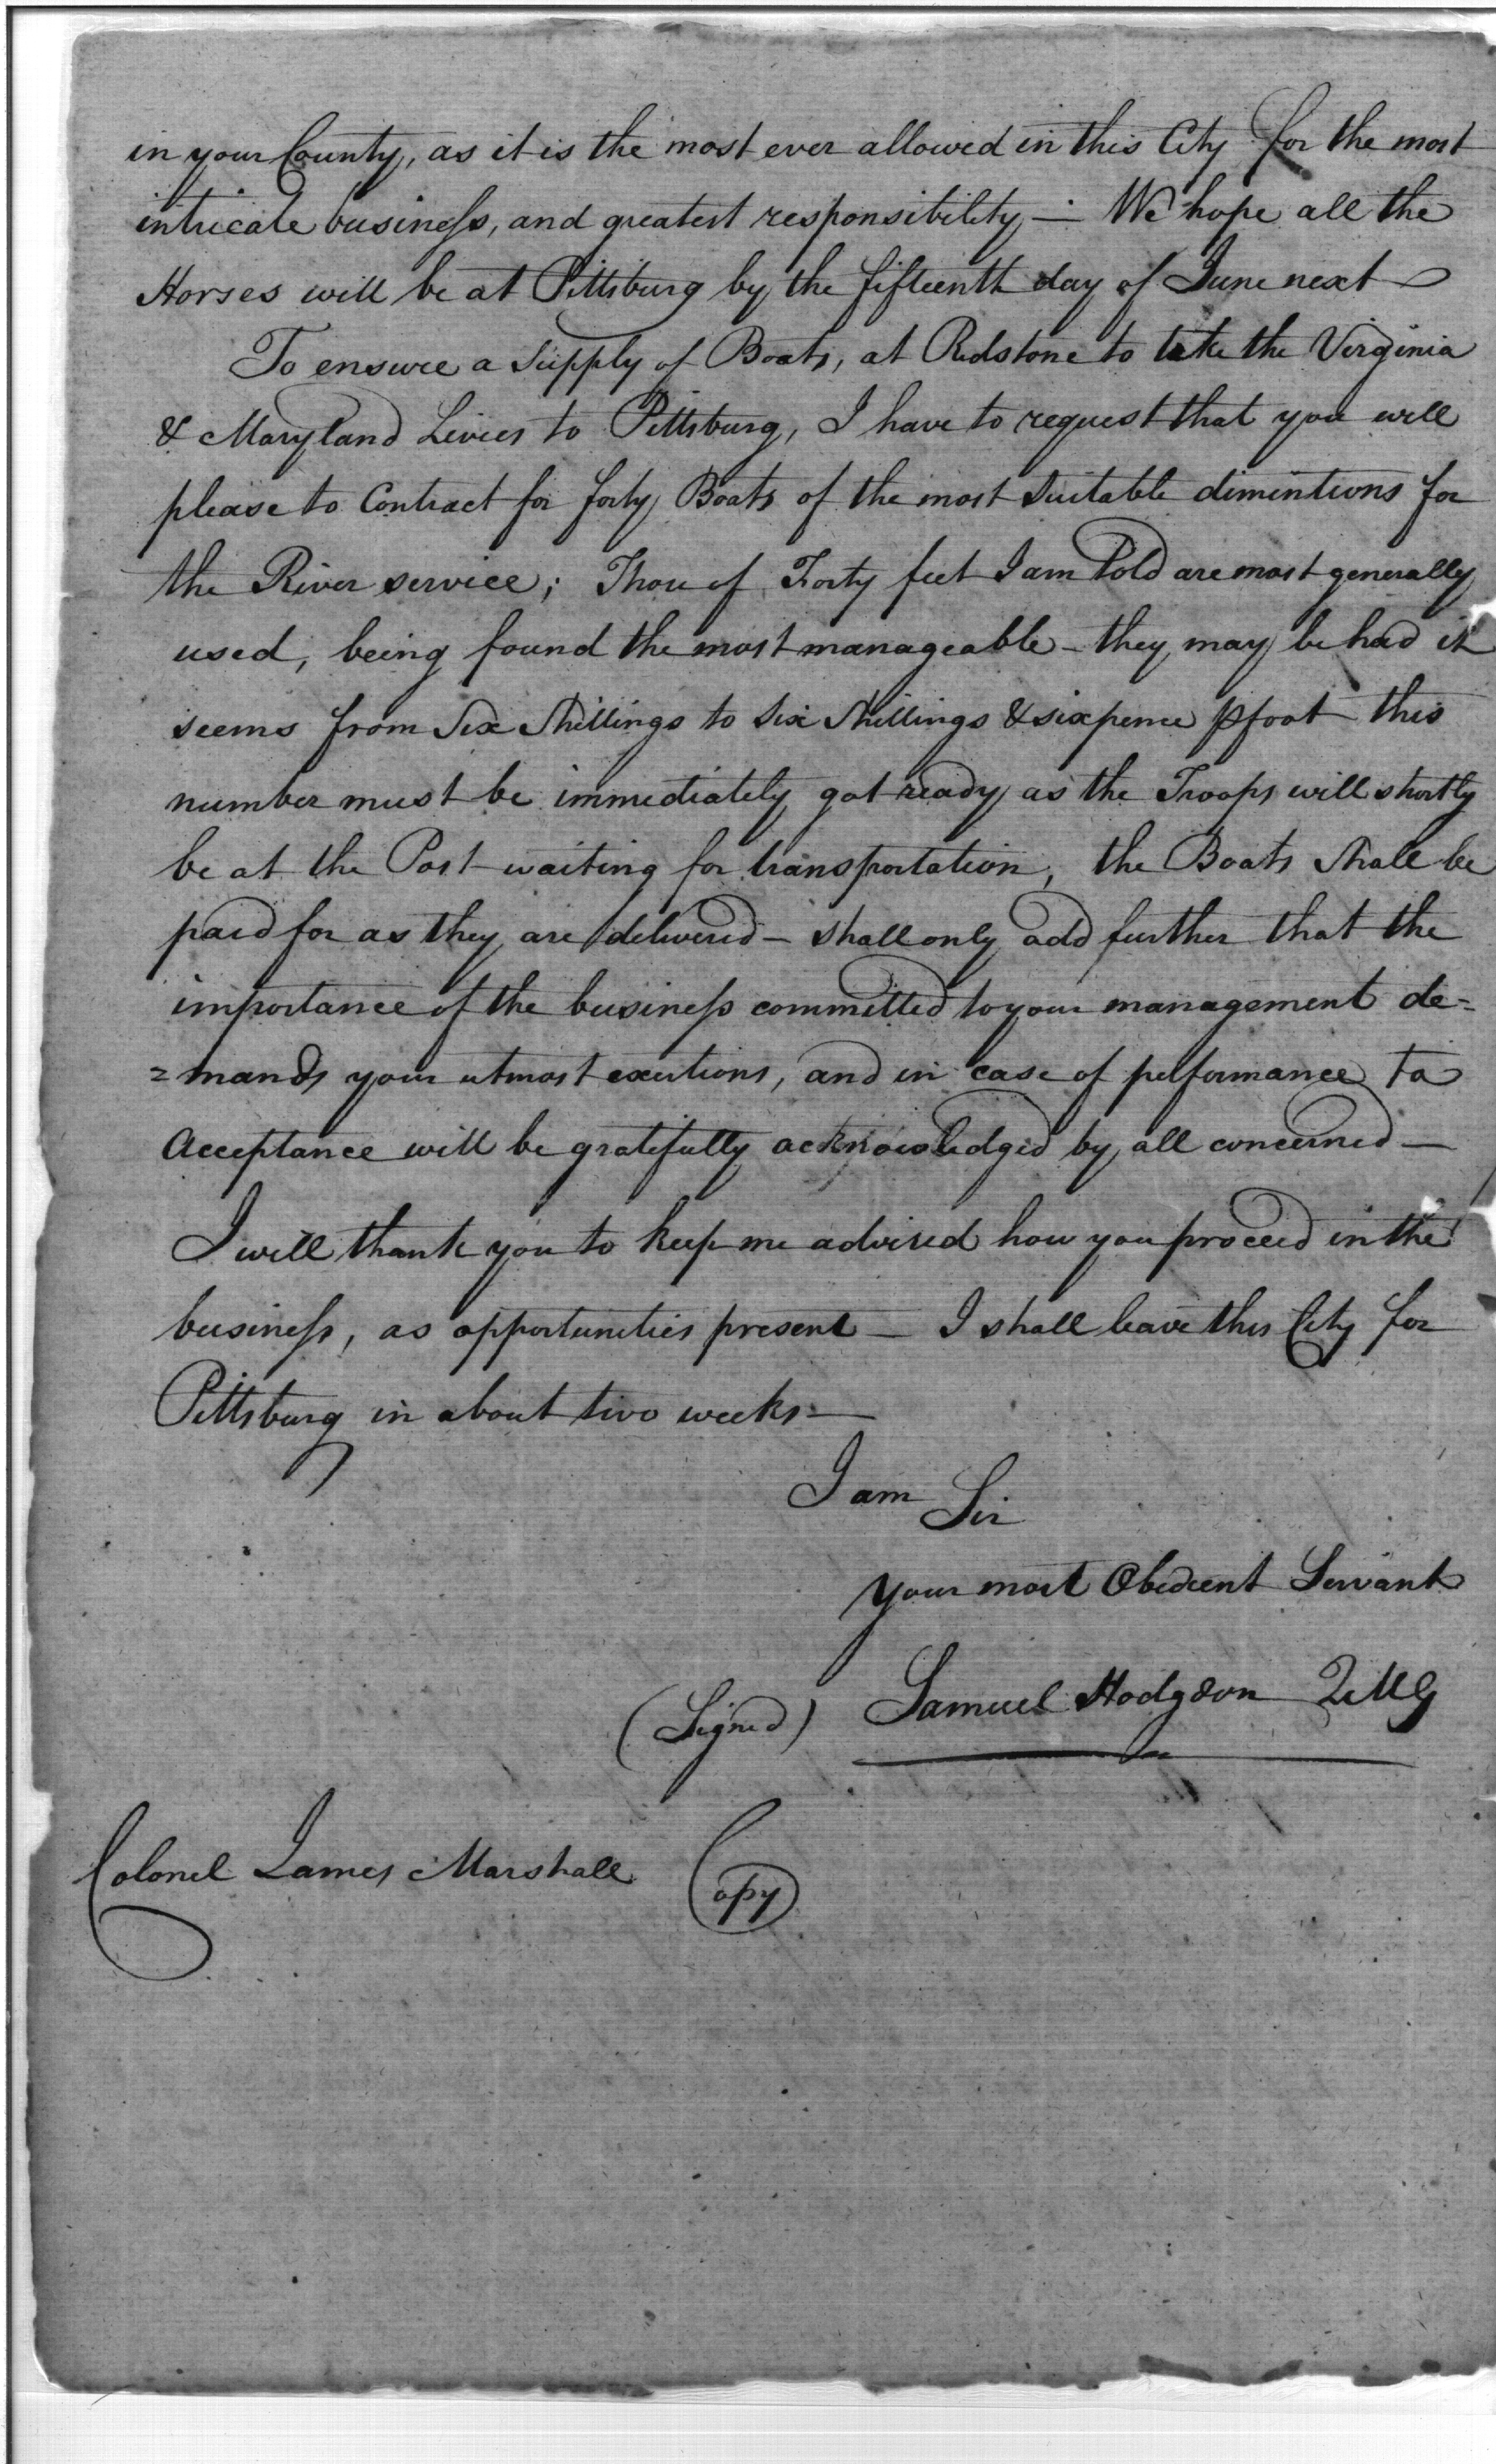 in your County, as it is the most ever allowed in this City for the most
intricate business, and greatest responsibility — We hope all the
Horses will be at Pittsburg by the fifteenth day of June next —
To ensure a Supply of Boats, at Redstone to take the Virginia
& Maryland Levies to Pittsburg, I have to request that you will
please to Contract for forty Boats of the most suitable dimentions for
the River service; Those of Forty feet I am told are most generally
used, being found the most manageable – they may be had it
seems from Six Shillings to Six Shillings & sixpence ⅌ foot this
number must be immediately got ready as the Troops will shortly
be at the Post waiting for transportation, the Boats shall be
paid for as they are delivered – shall only add further that the
importance of the business committed to your management de=
=mands your utmost exertions, and in case of performance to
Acceptance will be gratefully acknowledged by all concerned —
I will thank you to keep me advised how you proceed in the
business, as opportunities present — I shall leave this City for
Pittsburg in about two weeks —
I am Sir
your most Obedient Servant
(Signed) Samuel Hodgdon QMG
Colonel James Marshall Copy